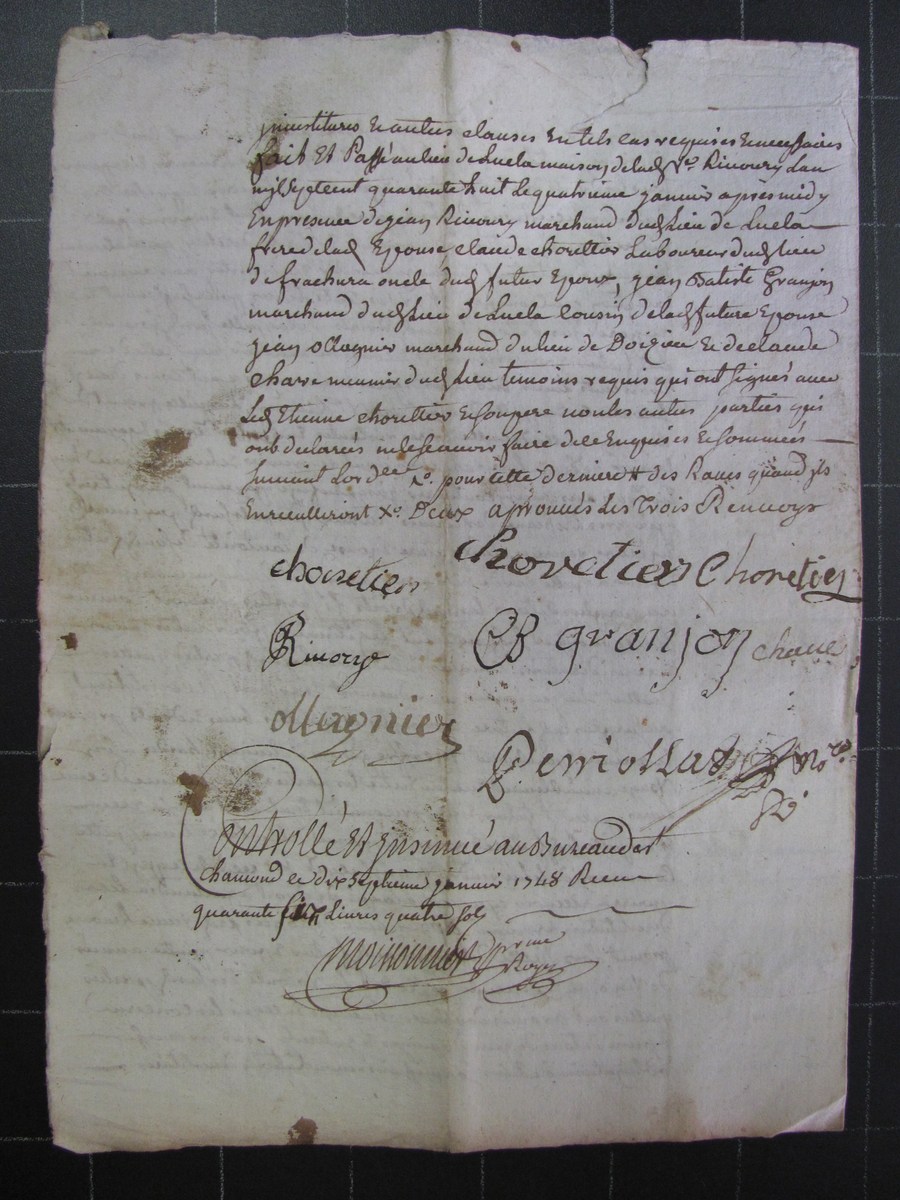 jnvestitures & autres clauses en tels cas requises & necessaires
fait Et Passé au lieu de Luela maison de lad Ve. Rivoiry Lan
mil sept cent quarante huit le quatrieme janvier apres midy
En presence de jean Rivoiry marchand dud Lieu de Luela
frere de lad Epouse, claude chorettier Laboureur dud lieu
de frachura oncle dud futur Epoux, jean Batiste Granjon
marchand dud Lieu de Luela cousin de lad future Epouse
jean ollagnier marchand du lieu de Doizieu & de claude
chave meunier dud Lieu temoins requis qui ont signés avec
Led Etienne chorettier & son pere non les autres parties qui
ont declarés ne le scavoir faire de ce Enquises & sommées
suivant Lord.ce X.o pour cette derniere # des Raves quand ils
En recuilleront X.o Deux aprouvés Les Trois Renvoys
choretier chovetier Choretier
Rivory CB granjon chave
ollagnier
Perriollat no.re
Controllé Et jnsinué au Bureau de st
chamond ce dix septieme janvier 1748 Receu
quarante six Livres quatre sols